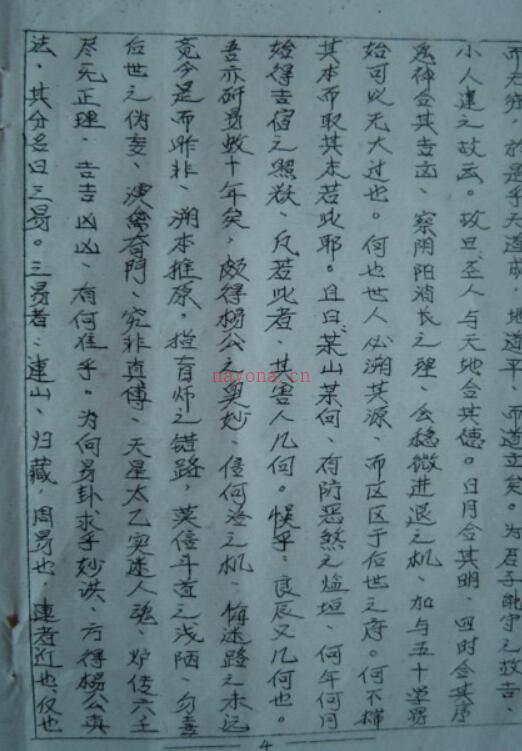 而无穷，於是乎天道成，地道平，而道立矣。为君子能守之故吉、
小人违之故凶。故曰、圣人与天地合其德。日月合其明、四时合其序
鬼神合其吉凶、察阴阳消长之理、公稳微进退之机、加与五十学易
始可以无大过也。何也世人必溯其源、而区区于后世之府。何不揣
其本而取其末若此耶。且曰、某山某向、有防恶煞之煴垣、何年何月
始得吉宿之照欤、凡若此者、其害人几何。悮乎、良辰又几何也。
吾亦研易数十年矣，颇得杨公之奥妙、信何洛之机、悔迷路之未远
竟今是而昨非、溯本推原，揸盲师之错路，莫信斗首之浅陋、勿喜
后世之伪妄、演禽奇門、究非真傅、天星太乙实迷人魂、炉传六壬
尽无正理、吉吉凶凶、有何准乎。为何易卦求乎妙诀、方得杨公真
法、其分名曰三易。三易者：連山、归藏，周易也，連者近也、仅也
4
nayona.cn